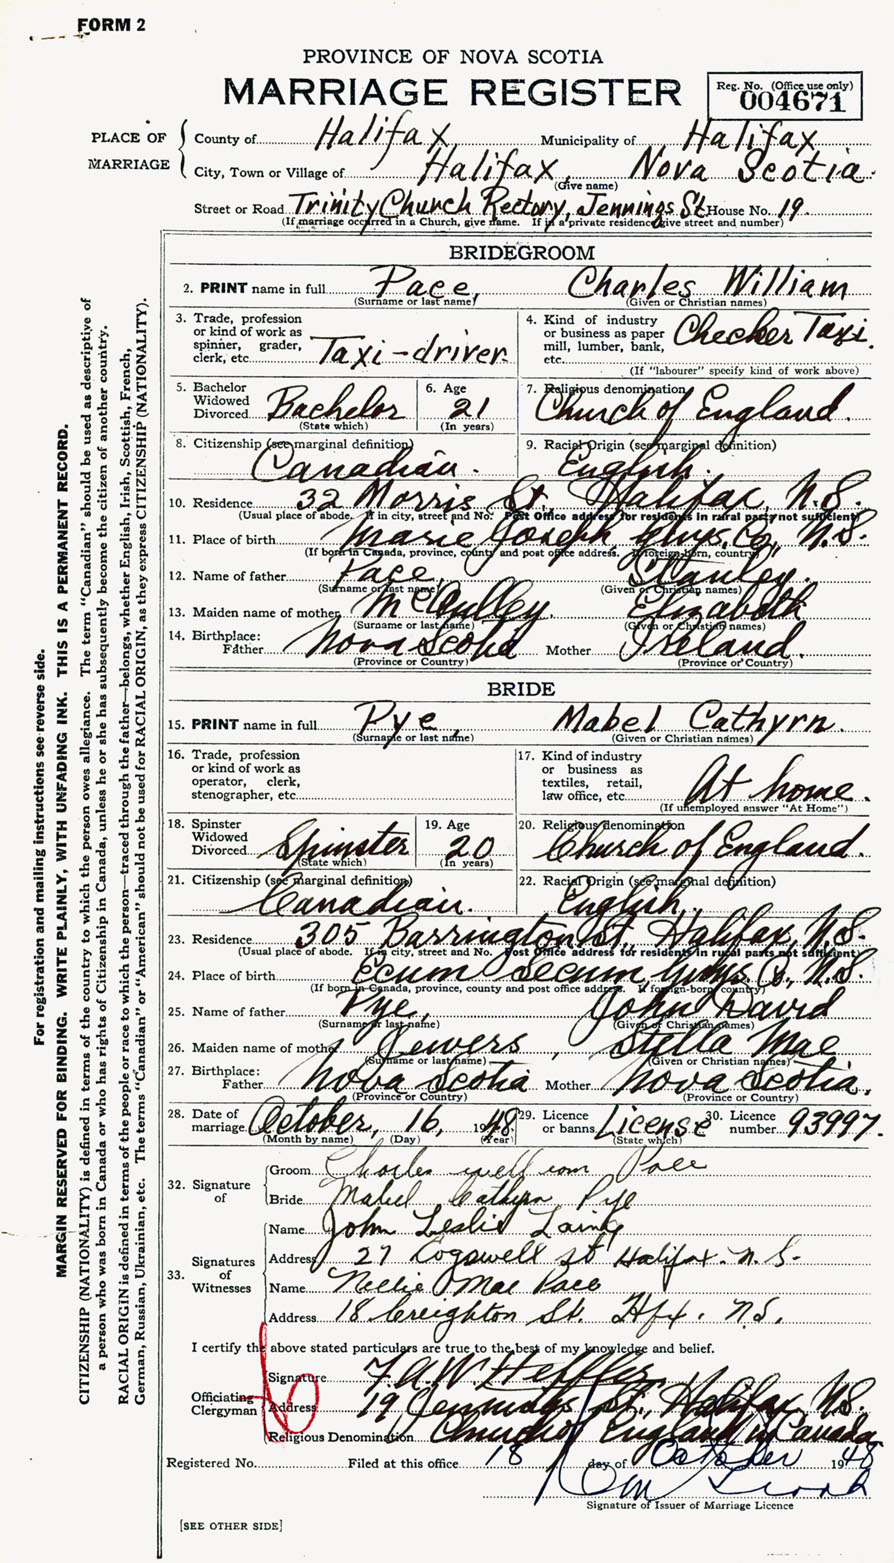 FORM 2
PROVINCE OF NOVA SCOTIA
MARRIAGE REGISTER
Reg. No. (Office use only)
004671
PLACE OF MARRIAGE
County of Halifax Municipality of Halifax
City, Town or Village of Halifax, Nova Scotia.
(Give name)
Street or Road Trinity Church Rectory, Jennings St. House No. 19.
(If marriage occurred in a Church, give name. If in a private residence give street and number)
BRIDEGROOM
2. PRINT name in full Pace, Charles William
(Surname or last name) (Given or Christian names)
3. Trade, profession or kind of work as spinner, grader, clerk, etc. Taxi-driver
4. Kind of industry or business as paper mill, lumber, bank, etc. Checker Taxi.
(If "labourer" specify kind of work above)
5. Bachelor Widowed Divorced Bachelor
(State which)
6. Age 21
(In years)
7. Religious denomination Church of England.
8. Citizenship (see marginal definition) Canadian.
9. Racial Origin (see marginal definition) English.
10. Residence 32 Morris St., Halifax, N.S.
(Usual place of abode. If in city, street and No. Post Office address for residents in rural parts not sufficient)
11. Place of birth Marie Joseph Guys. Co., N.S.
(If born in Canada, province, county and post office address. If foreign-born, country)
12. Name of father Pace, Stanley.
(Surname or last name) (Given or Christian names)
13. Maiden name of mother McCulley. Elizabeth
(Surname or last name) (Given or Christian names)
14. Birthplace: Father Nova Scotia Mother Ireland.
(Province or Country) (Province or Country)
BRIDE
15. PRINT name in full Pye, Mabel Cathyrn.
(Surname or last name) (Given or Christian names)
16. Trade, profession or kind of work as operator, clerk, stenographer, etc.
17. Kind of industry or business as textiles, retail, law office, etc. At home.
(If unemployed answer "At Home")
18. Spinster Widowed Divorced Spinster
(State which)
19. Age 20
(In years)
20. Religious denomination Church of England.
21. Citizenship (see marginal definition) Canadian.
22. Racial Origin (see marginal definition) English.
23. Residence 305 Barrington St., Halifax, N.S.
(Usual place of abode. If in city, street and No. Post Office address for residents in rural parts not sufficient)
24. Place of birth Ecum Secum, Guys. Co., N.S.
(If born in Canada, province, county and post office address. If foreign-born, country)
25. Name of father Pye, John David
(Surname or last name) (Given or Christian names)
26. Maiden name of mother Jewers, Stella Mae
(Surname or last name) (Given or Christian names)
27. Birthplace: Father Nova Scotia Mother Nova Scotia.
(Province or Country) (Province or Country)
28. Date of marriage October, 16, 1948.
(Month by name) (Day) (Year)
29. Licence or banns. License
(State which)
30. Licence number 93997.
32. Signature of
Groom Charles William Pace
Bride Mabel Cathyrn Pye
33. Signatures of Witnesses
Name John Leslie Laing
Address 27 Cogswell St Halifax. N.S.
Name Nellie Mae Pace
Address 18 Creighton St. Hfx. N.S.
I certify the above stated particulars are true to the best of my knowledge and belief.
Officiating Clergyman
Signature F.A.W.
Address 19 Jennings St., Halifax, N.S.
Religious Denomination Church of England in Canada
Registered No. Filed at this office 18 day of October 1948
Signature of Issuer of Marriage Licence
[SEE OTHER SIDE]
For registration and mailing instructions see reverse side.
MARGIN RESERVED FOR BINDING. WRITE PLAINLY, WITH UNFADING INK. THIS IS A PERMANENT RECORD.
CITIZENSHIP (NATIONALITY) is defined in terms of the country to which the person owes allegiance. The term "Canadian" should be used as descriptive of
a person who was born in Canada or who has rights of Citizenship in Canada, unless he or she has subsequently become the citizen of another country.
RACIAL ORIGIN is defined in terms of the people or race to which the person—traced through the father—belongs, whether English, Irish, Scottish, French,
German, Russian, Ukrainian, etc. The terms "Canadian" or "American" should not be used for RACIAL ORIGIN, as they express CITIZENSHIP (NATIONALITY).